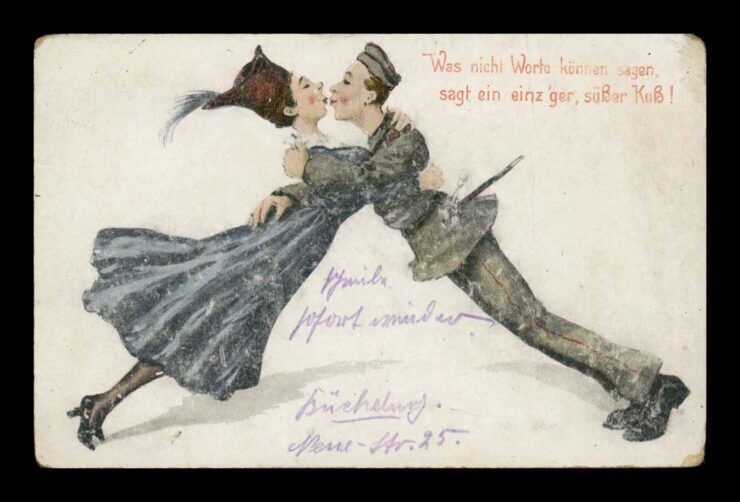 Was nicht Worte können sagen,
sagt ein einz'ger, süßer Kuß!
schreibe
sofort wieder.
Bückeburg.
Neue-Str. 25.